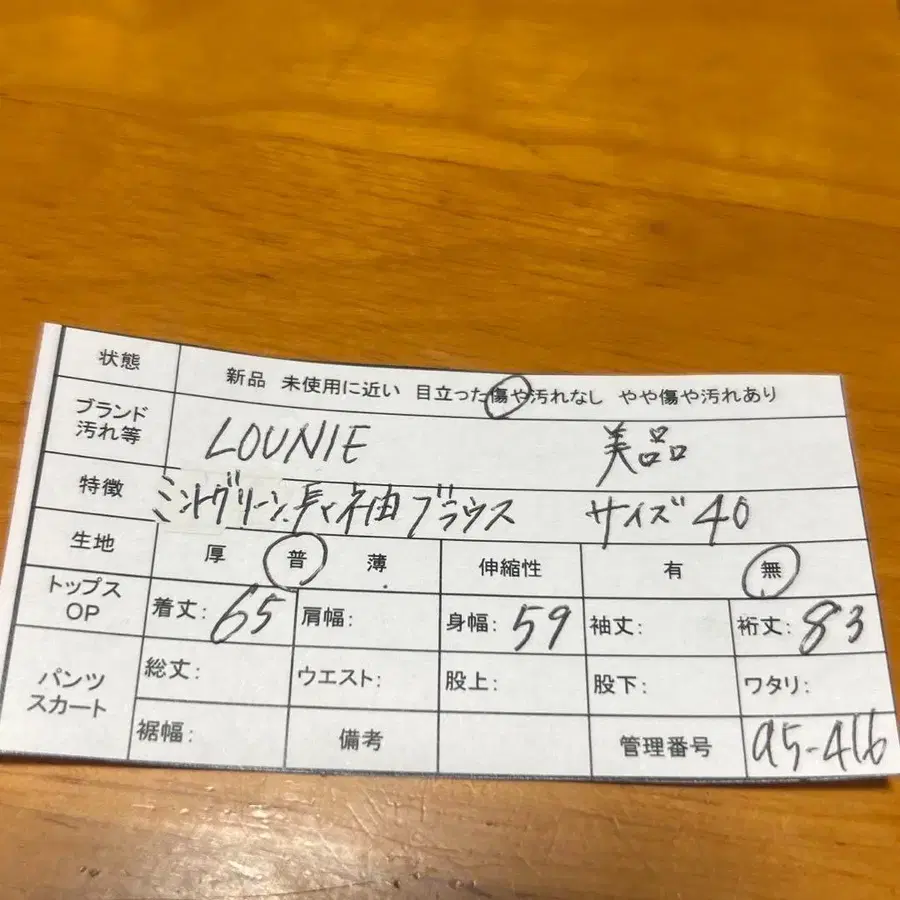 状態 新品 未使用に近い 目立った傷や汚れなし やや傷や汚れあり
ブランド 汚れ等 LOUNIE 美品
特徴 ミントグリーン、長い袖ブラウス サイズ40
生地 厚 普 薄 伸縮性 有 無
トップス OP 着丈:65 肩幅: 身幅:59 袖丈: 裄丈:83
パンツ スカート 総丈: ウエスト: 股上: 股下: ワタリ:
裾幅: 備考 管理番号 a5-416